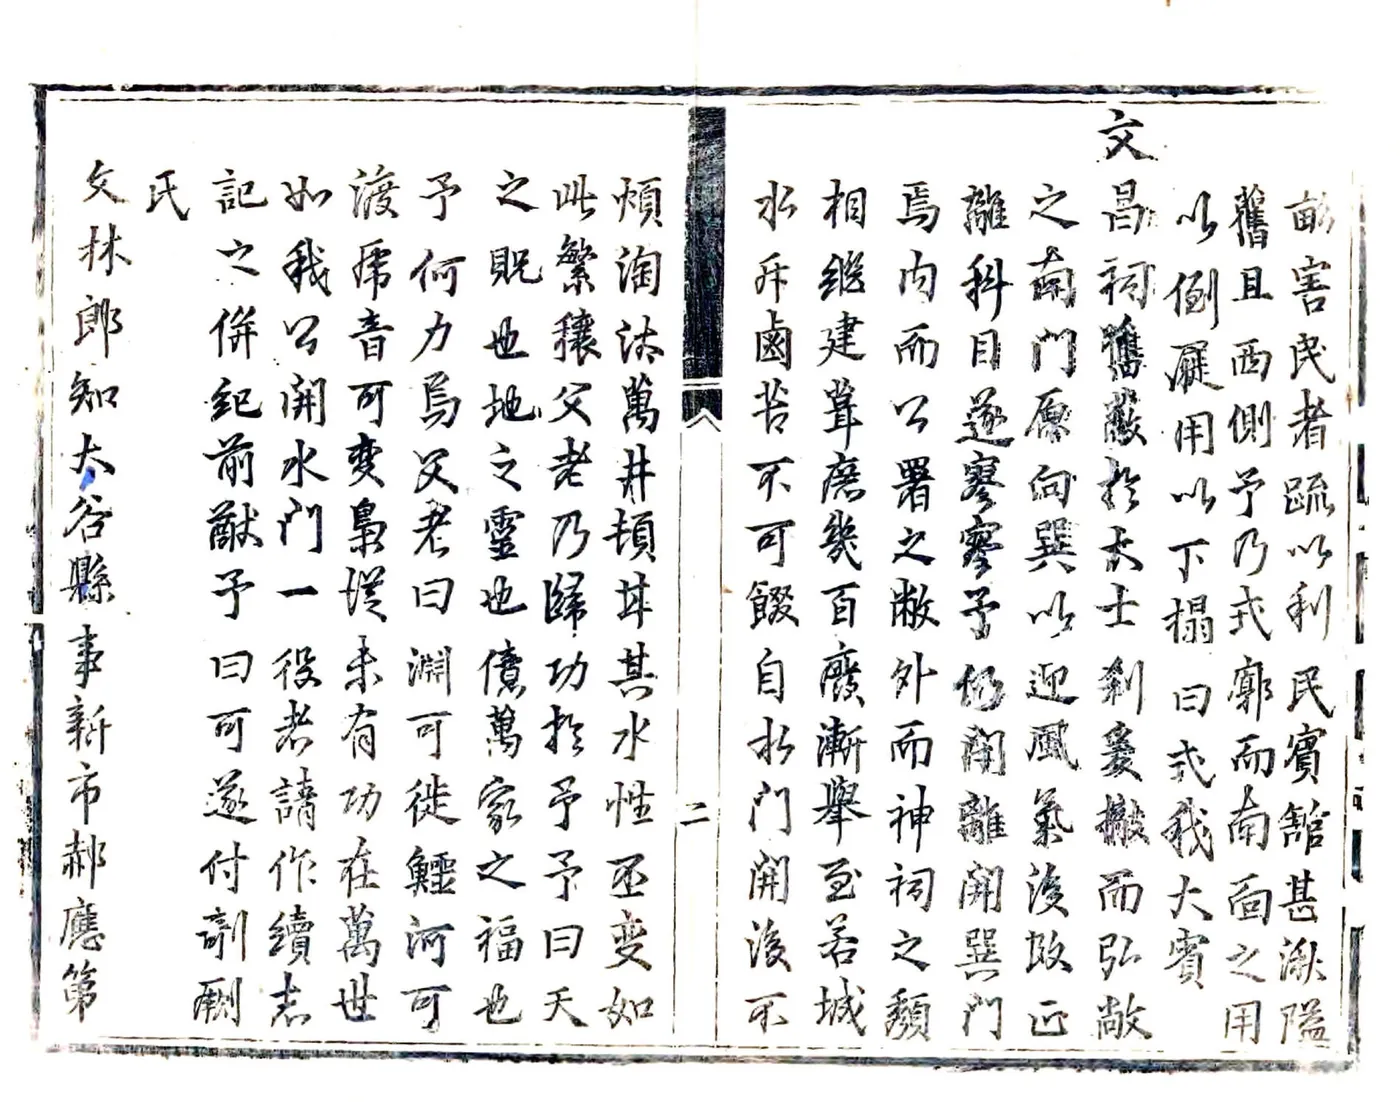 畝害民者䟽以利民賓舘甚湫隘
舊且西側予乃式廓而南面之用
以倒屣用以下榻曰式我大賓
文昌祠舊蔽扵大士刹爰撤而弘敞
之南門原向巽以迎風氣後改正
離科目遂寥寥予仍闭離開巽門
焉内而公署之敝外而神祠之頽
相繼建葺庶幾百廢漸舉至若城
水斥鹵苦不可餟自水门開後不
煩淘汰萬井頓甘其水性丕变如
此繁穰父老乃歸功扵予予曰天
之貺也地之靈也億萬家之福也
予何力焉父老曰渊可徙鱷河可
渡虎音可变梟從未有功在萬世
如我公開水门一役者請作續志
記之併紀前猷予曰可遂付剞劂
氏
文林郎知太谷縣事新市郝應第
二